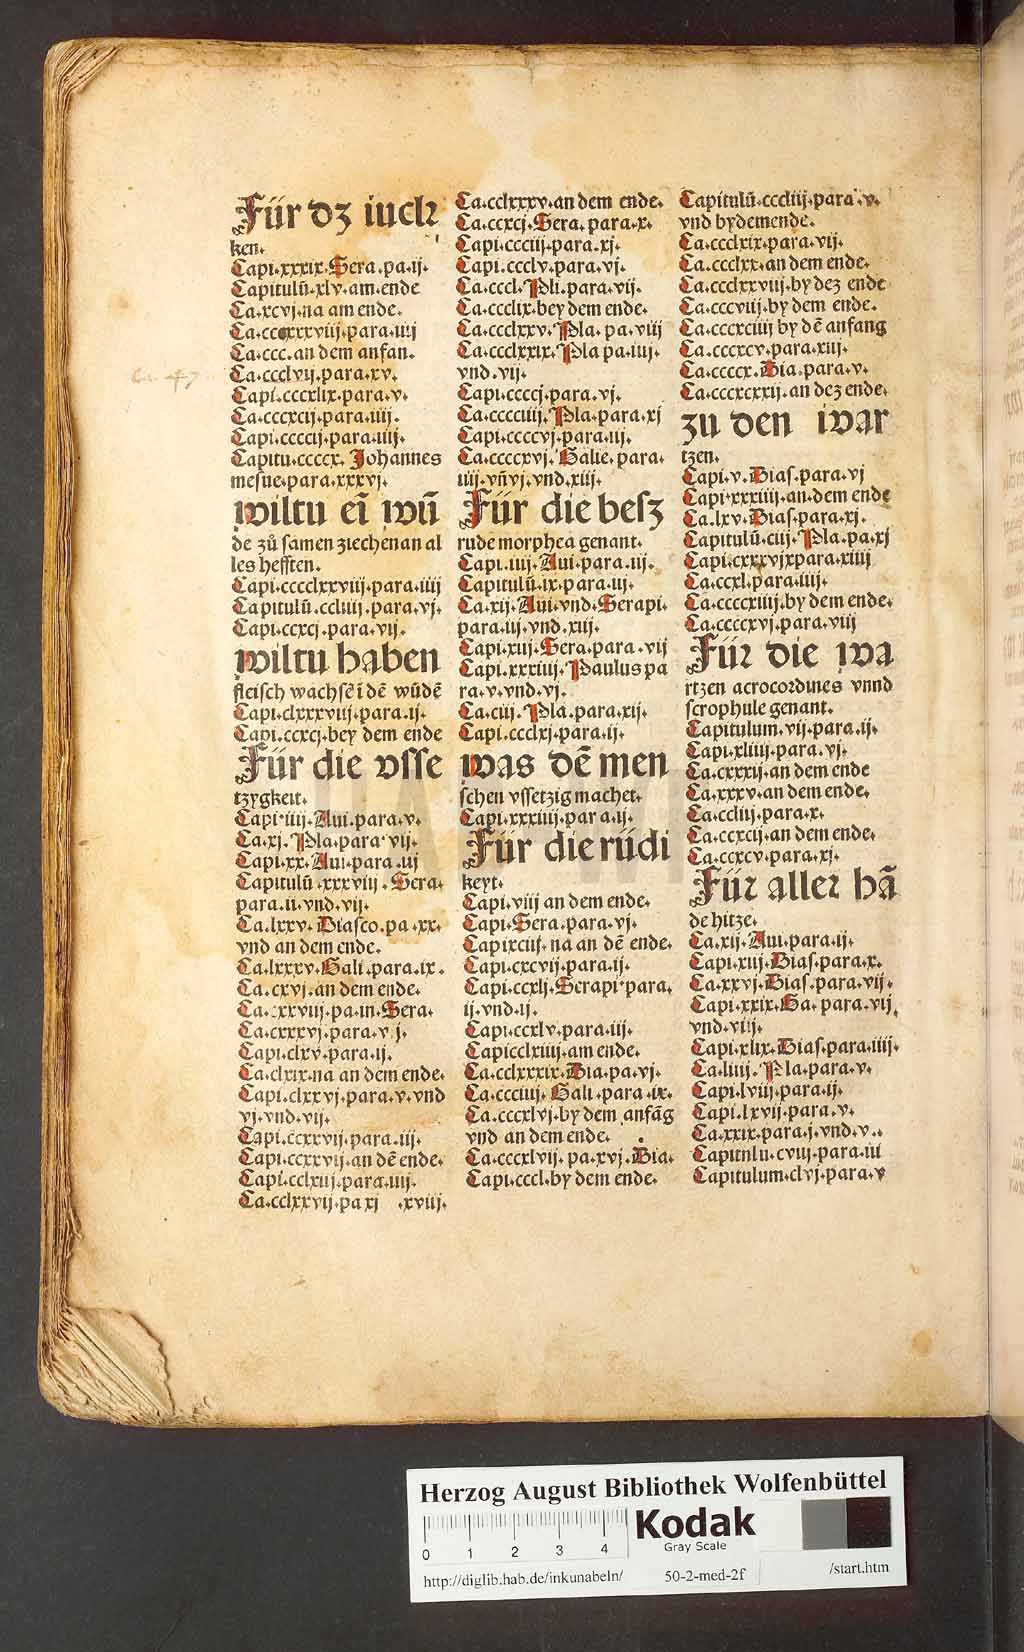 Für dz iuck
ken.
Capi.xxxix.Sera.pa.ij.
Capitulū.xlv.am.ende
Ca.xcvj.na am ende.
Ca.ccxxxviij.para.iiij
Ca.ccc.an dem anfan.
Ca.ccclvij.para.xv.
Capi.cccxlix.para.v.
Ca.cccxcij.para.iiij.
Capi.ccccij.para.iiij.
Capitu.ccccx.Johannes
mesue.para.xxxvj.
wiltu eī wū
de zů samen ziechen an al
les hefften.
Capi.cccclxxviij.para.iiij
Capitulū.ccliiij.para.vj.
Capi.ccxcj.para.vij.
wiltu haben
fleisch wachsē ī dē wūdē
Capi.clxxxviij.para.ij.
Capi.ccxcj.bey dem ende
Für die vsse
tzygkeit.
Capi.iiij.Aui.para.v.
Ca.xj.Pla.para.vij.
Capi.xx.Aui.para.iij
Capitulū.xxxviij.Sera.
para.ij.vnd.vij.
Ca.lxxv.Diasco.pa.xx.
vnd an dem ende.
Ca.lxxxv.Hali.para.ix.
Ca.cxvj.an dem ende.
Ca.xxviij.pa.iii.Sera.
Ca.cxxxvj.para.vj.
Capi.clxv.para.ij.
Ca.clxix.na an dem ende.
Capi.clxxvj.para.v.vnd
vj.vnd.vij.
Capi.ccxxvij.para.iij.
Capi.ccxxvij.an dē ende.
Capi.cclxiij.para.iiij.
Ca.cclxxvij.pa xj .xviij.
Ca.cclxxxv.an dem ende.
Ca.ccxcj.Sera.para.x.
Capi.ccciij.para.xj.
Capi.ccclv.para.vj.
Ca.cccl.Pli.para.vij.
Ca.ccclix.bey dem ende.
Ca.ccclxxv.Pla.pa.viij
Ca.ccclxxix.Pla pa.iiij.
vnd.vij.
Capi.ccccj.para.vj.
Ca.cccciiij.Pla.para.xj
Capi.ccccvj.para.iij.
Ca.ccccxvj.Galie.para.
iiij.vn̄ vj.vnd.xiij.
Für die besz
rude morphea genant.
Capi.iiij.Aui.para.ij.
Capitulū.ix.para.iij.
Ca.xij.Aui.vnd.Serapi.
para.iij.vnd.xiij.
Capi.xiij.Sera.para.vij
Capi.xxxiiij.Paulus pa
ra.v.vnd.vj.
Ca.ciij.Pla.para.xij.
Capi.ccclxj.para.ij.
was dē men
schen vssetzig machet.
Capi.xxxiiij.para.ij.
Für die rüdi
keyt.
Capi.viij an dem ende.
Capi.Sera.para.vj.
Capi.xciij.na an dē ende.
Capi.cxcvij.para.ij.
Capi.ccxlj.Serapi.para.
ij.vnd.ij.
Capi.ccxlv.para.iij.
Capi.cclxiiij.am ende.
Ca.cclxxxix.Dia.pa.vj.
Ca.ccciiij.Hali.para.ix.
Ca.cccxlvj.by dem anfāg
vnd an dem ende.
Ca.cccxlvij.pa.xvj.Dia.
Capi.cccl.by dem ende.
Capitulū.cccliij.para.v.
vnd by dem ende.
Ca.ccclxix.para.vij.
Ca.ccclxx.an dem ende.
Ca.ccclxxviij.by dez ende
Ca.cccviij.by dem ende.
Ca.cccxciiij by dē anfang
Ca.cccxcv.para.xiij.
Ca.ccccx.Dia.para.v.
Ca.cccxcxxij.an dez ende.
zu den war
tzen.
Capi.v.Dias.para.vj
Capi.xxxiiij.an.dem ende
Ca.lxv.Dias.para.xj.
Capitulū.ciij.Pla.pa.xj
Capi.cxxxvjxpara.xiiij
Ca.ccxl.para.iiij.
Ca.ccccxiiij.by dem ende.
Ca.ccccxvj.para.viij
Für die wa
rtzen acrocordines vnnd
scrophule genant.
Capitulum.vij.para.ij.
Capi.xliiij.para.vj.
Ca.cxxxij.an dem ende
Ca.xxxv.an dem ende.
Ca.ccliij.para.x.
Ca.ccxcij.an dem ende.
Ca.ccxcv.para.xj.
Für aller hā
de hitze.
Ca.xij.Aui.para.ij.
Capi.xiij.Dias.para.x.
Ca.xxvj.Dias.para.vij.
Capi.xxix.Ga.para.vij
vnd.viij.
Capi.xlix.Dias.para.iiij.
Ca.liiij.Pla.para.v.
Capi.lviij.para.ij.
Capi.lxvij.para.v.
Ca.xxix.para.j.vnd.v.
Capitulu.cviij.para.iii
Capitulum.clvj.para.v
Ca. 47
Herzog August Bibliothek Wolfenbüttel
0 1 2 3 4
Kodak
Gray Scale
http://diglib.hab.de/inkunabeln/ 50-2-med-2f /start.htm